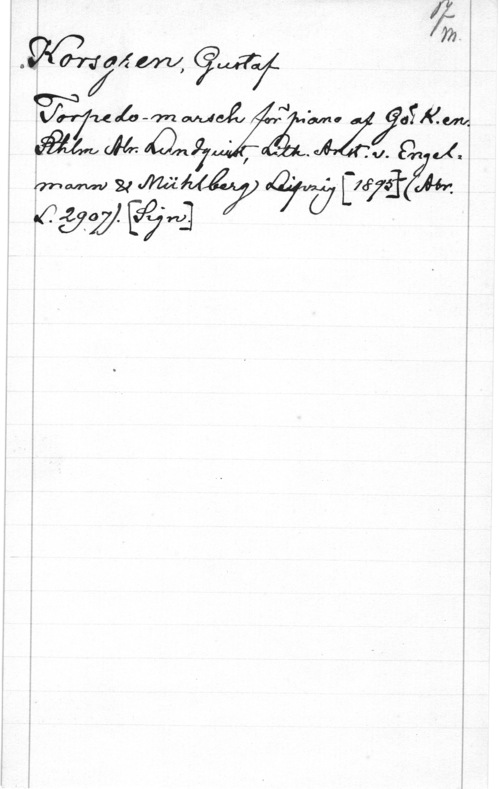 17/m.
Korsgren, Gustaf
Torpedo-marsch för piano af Gos K.en.
Sthlm Abr. Lundquist, Lith. Anst. v. Engel-
mann & Mühlberg, Leipzig [1895] (Abr.
L. 2907). [Sign]